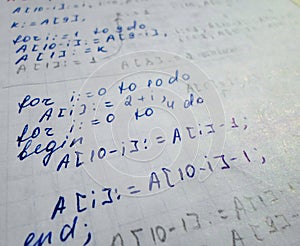 A[10-i]:=A[
k:=A[9];
for i:=1 to 9 do
A[10-i]:=A[9-i];
A[i]:=k
A[i]:=1
for i:=0 to 10 do
A[i]:=2+i;
for i:=0 to 4 do
begin
A[10-i]:=A[i]-1;
A[i]:=A[10-i]-1;
end;
A[10-1]:=A[